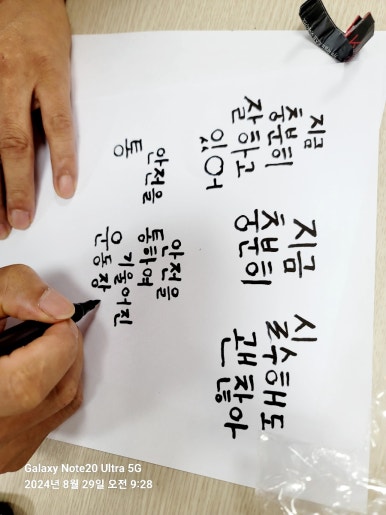 지금
충분히
잘하고
있어
지금
충분히
실수해도
괜찮아
안전을
통
안전을
통하여
기울어진
운동장
Galaxy Note20 Ultra 5G
2024년 8월 29일 오전 9:28